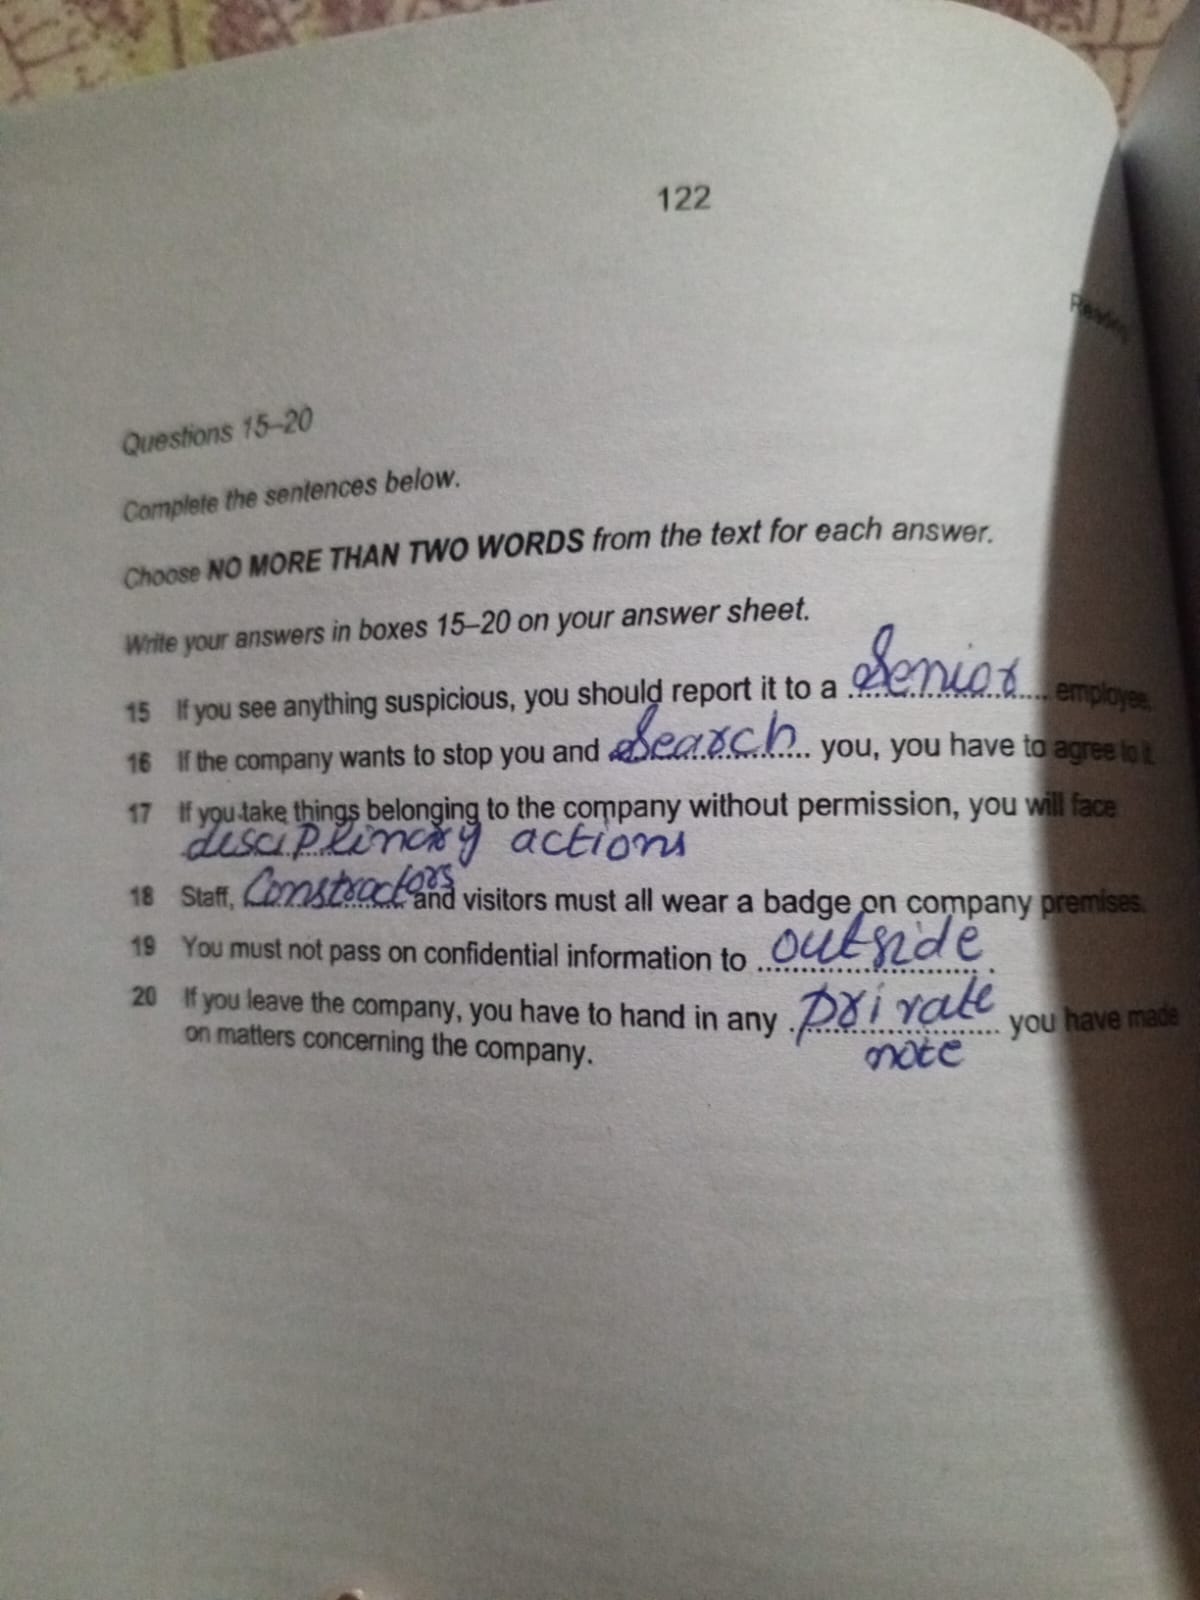 122
Reading
Questions 15–20
Complete the sentences below.
Choose NO MORE THAN TWO WORDS from the text for each answer.
Write your answers in boxes 15–20 on your answer sheet.
15 If you see anything suspicious, you should report it to a Senior employee.
16 If the company wants to stop you and Search you, you have to agree to it.
17 If you take things belonging to the company without permission, you will face
disciplinary actions
18 Staff, Constractors and visitors must all wear a badge on company premises.
19 You must not pass on confidential information to outside.
20 If you leave the company, you have to hand in any private note you have made
on matters concerning the company.